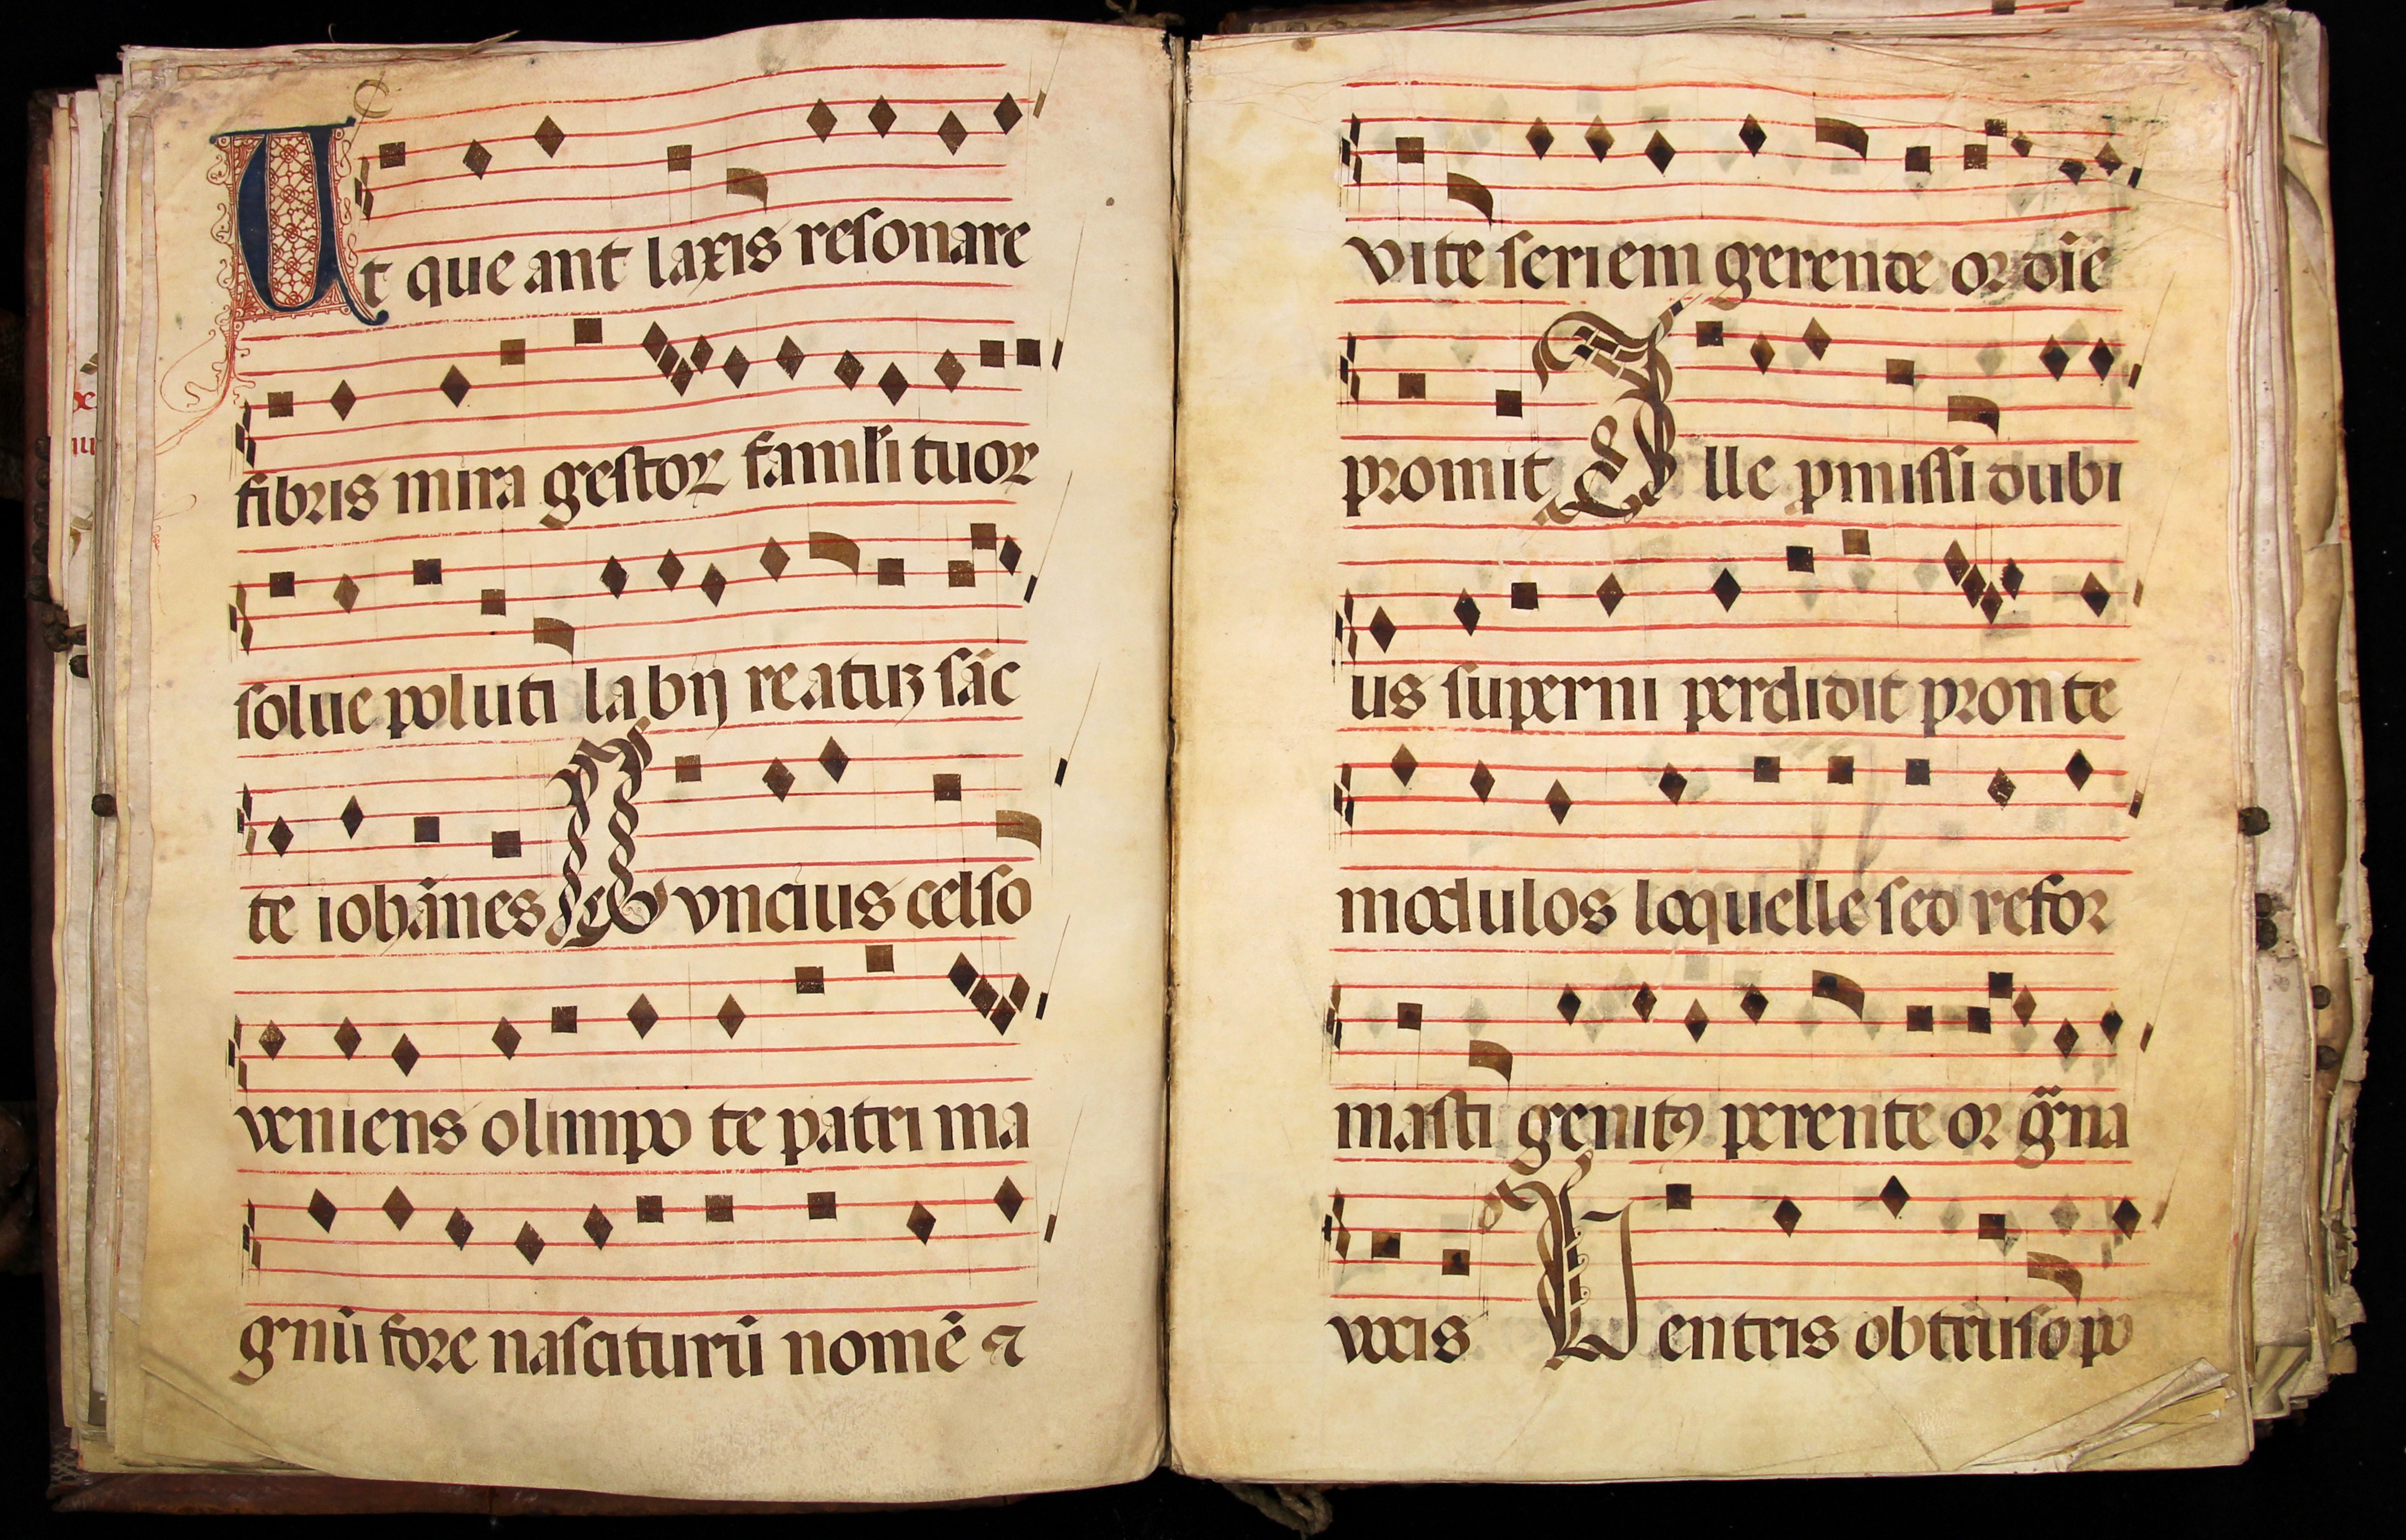 Ut que ant laxis reſonare
fibris mira geſtoꝝ famĺi tuoꝝ
ſolue poluti labij reatuꝫ ſāc
te iohānes Nvncius celſo
veniens olimpo te patri ma
gnū fore naſciturū nomē ⁊
vite ſeriem gerende ordīe
promit Ille ꝓmiſſi dubi
us ſuperni perdidit pronte
modulos loquelle ſed refor
maſti genitꝰ perente or gͣna
vocis Ventris obtruſo po